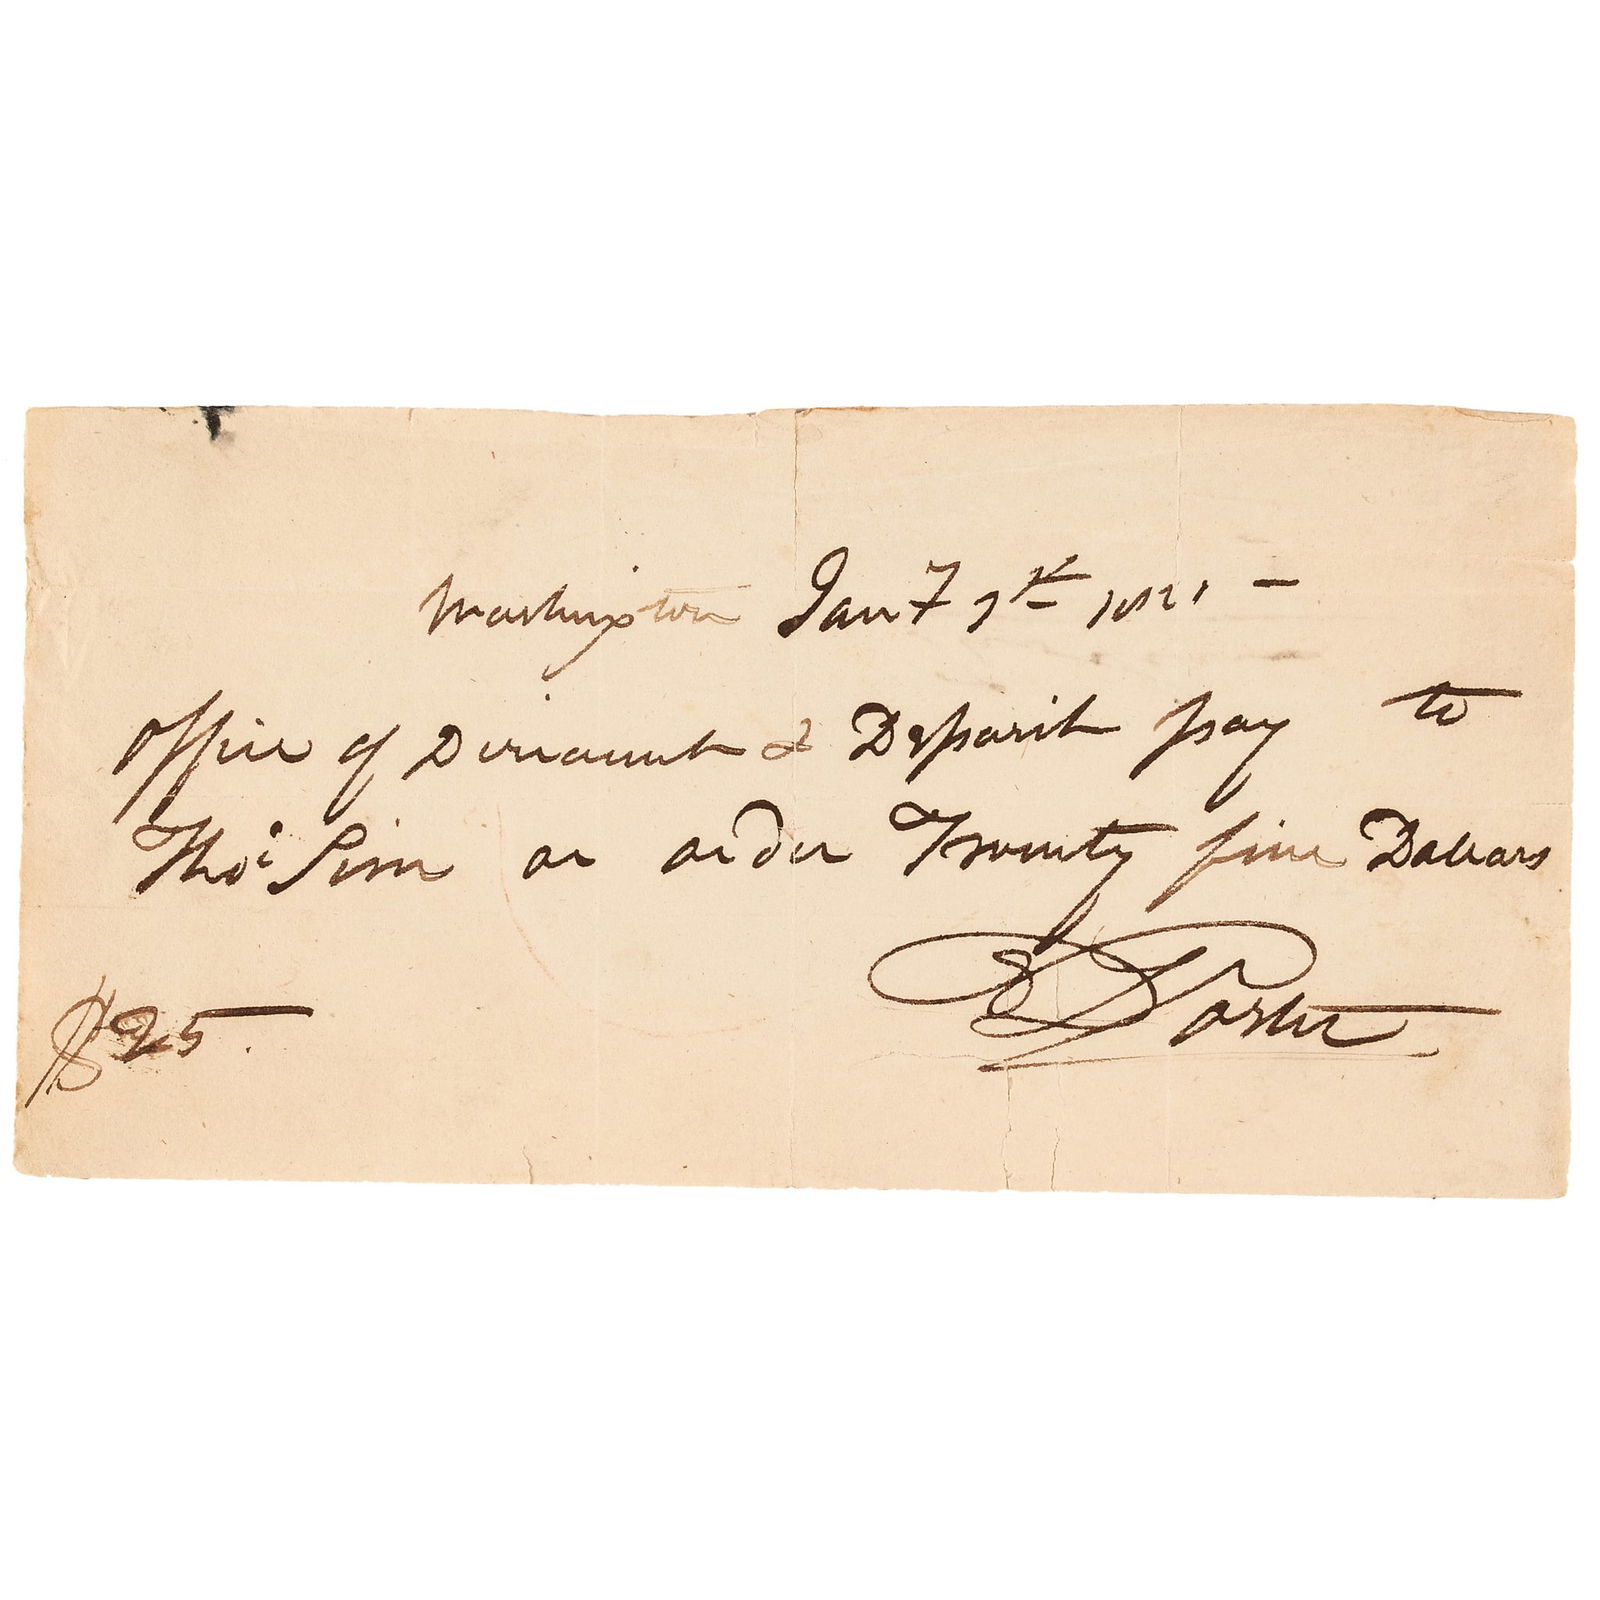 Washington Jany 7th 1821 —
Office of Discount & Deposit pay to
Thos Sim or order Twenty five Dollars
D Porter
$25.